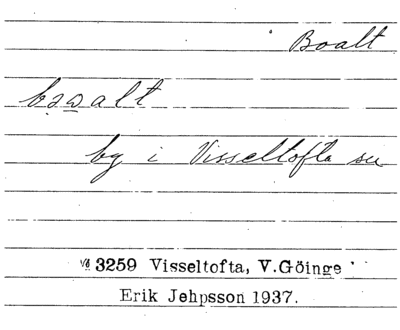 Boalt
bowalt
by i Visseltofta sn
3259 Visseltofta, V.Göinge
Erik Jehpsson 1937.